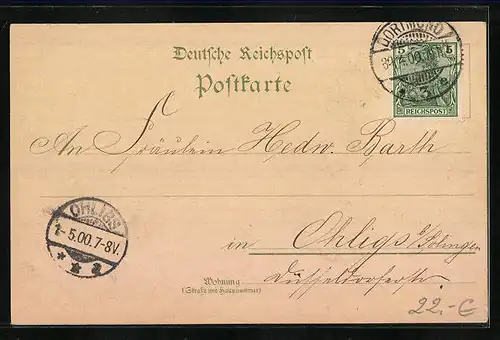 DORTMUND
5 5
REICHSPOST
Deutsche Reichspost
Postkarte
An Fräulein Hedw. Barth
OHLIGS
1-5.00.7-8V.
* * a
in Ohligs b/Solingen
Wohnung
(Straße und Hausnummer)
Düsseldorferstr.
22.- €